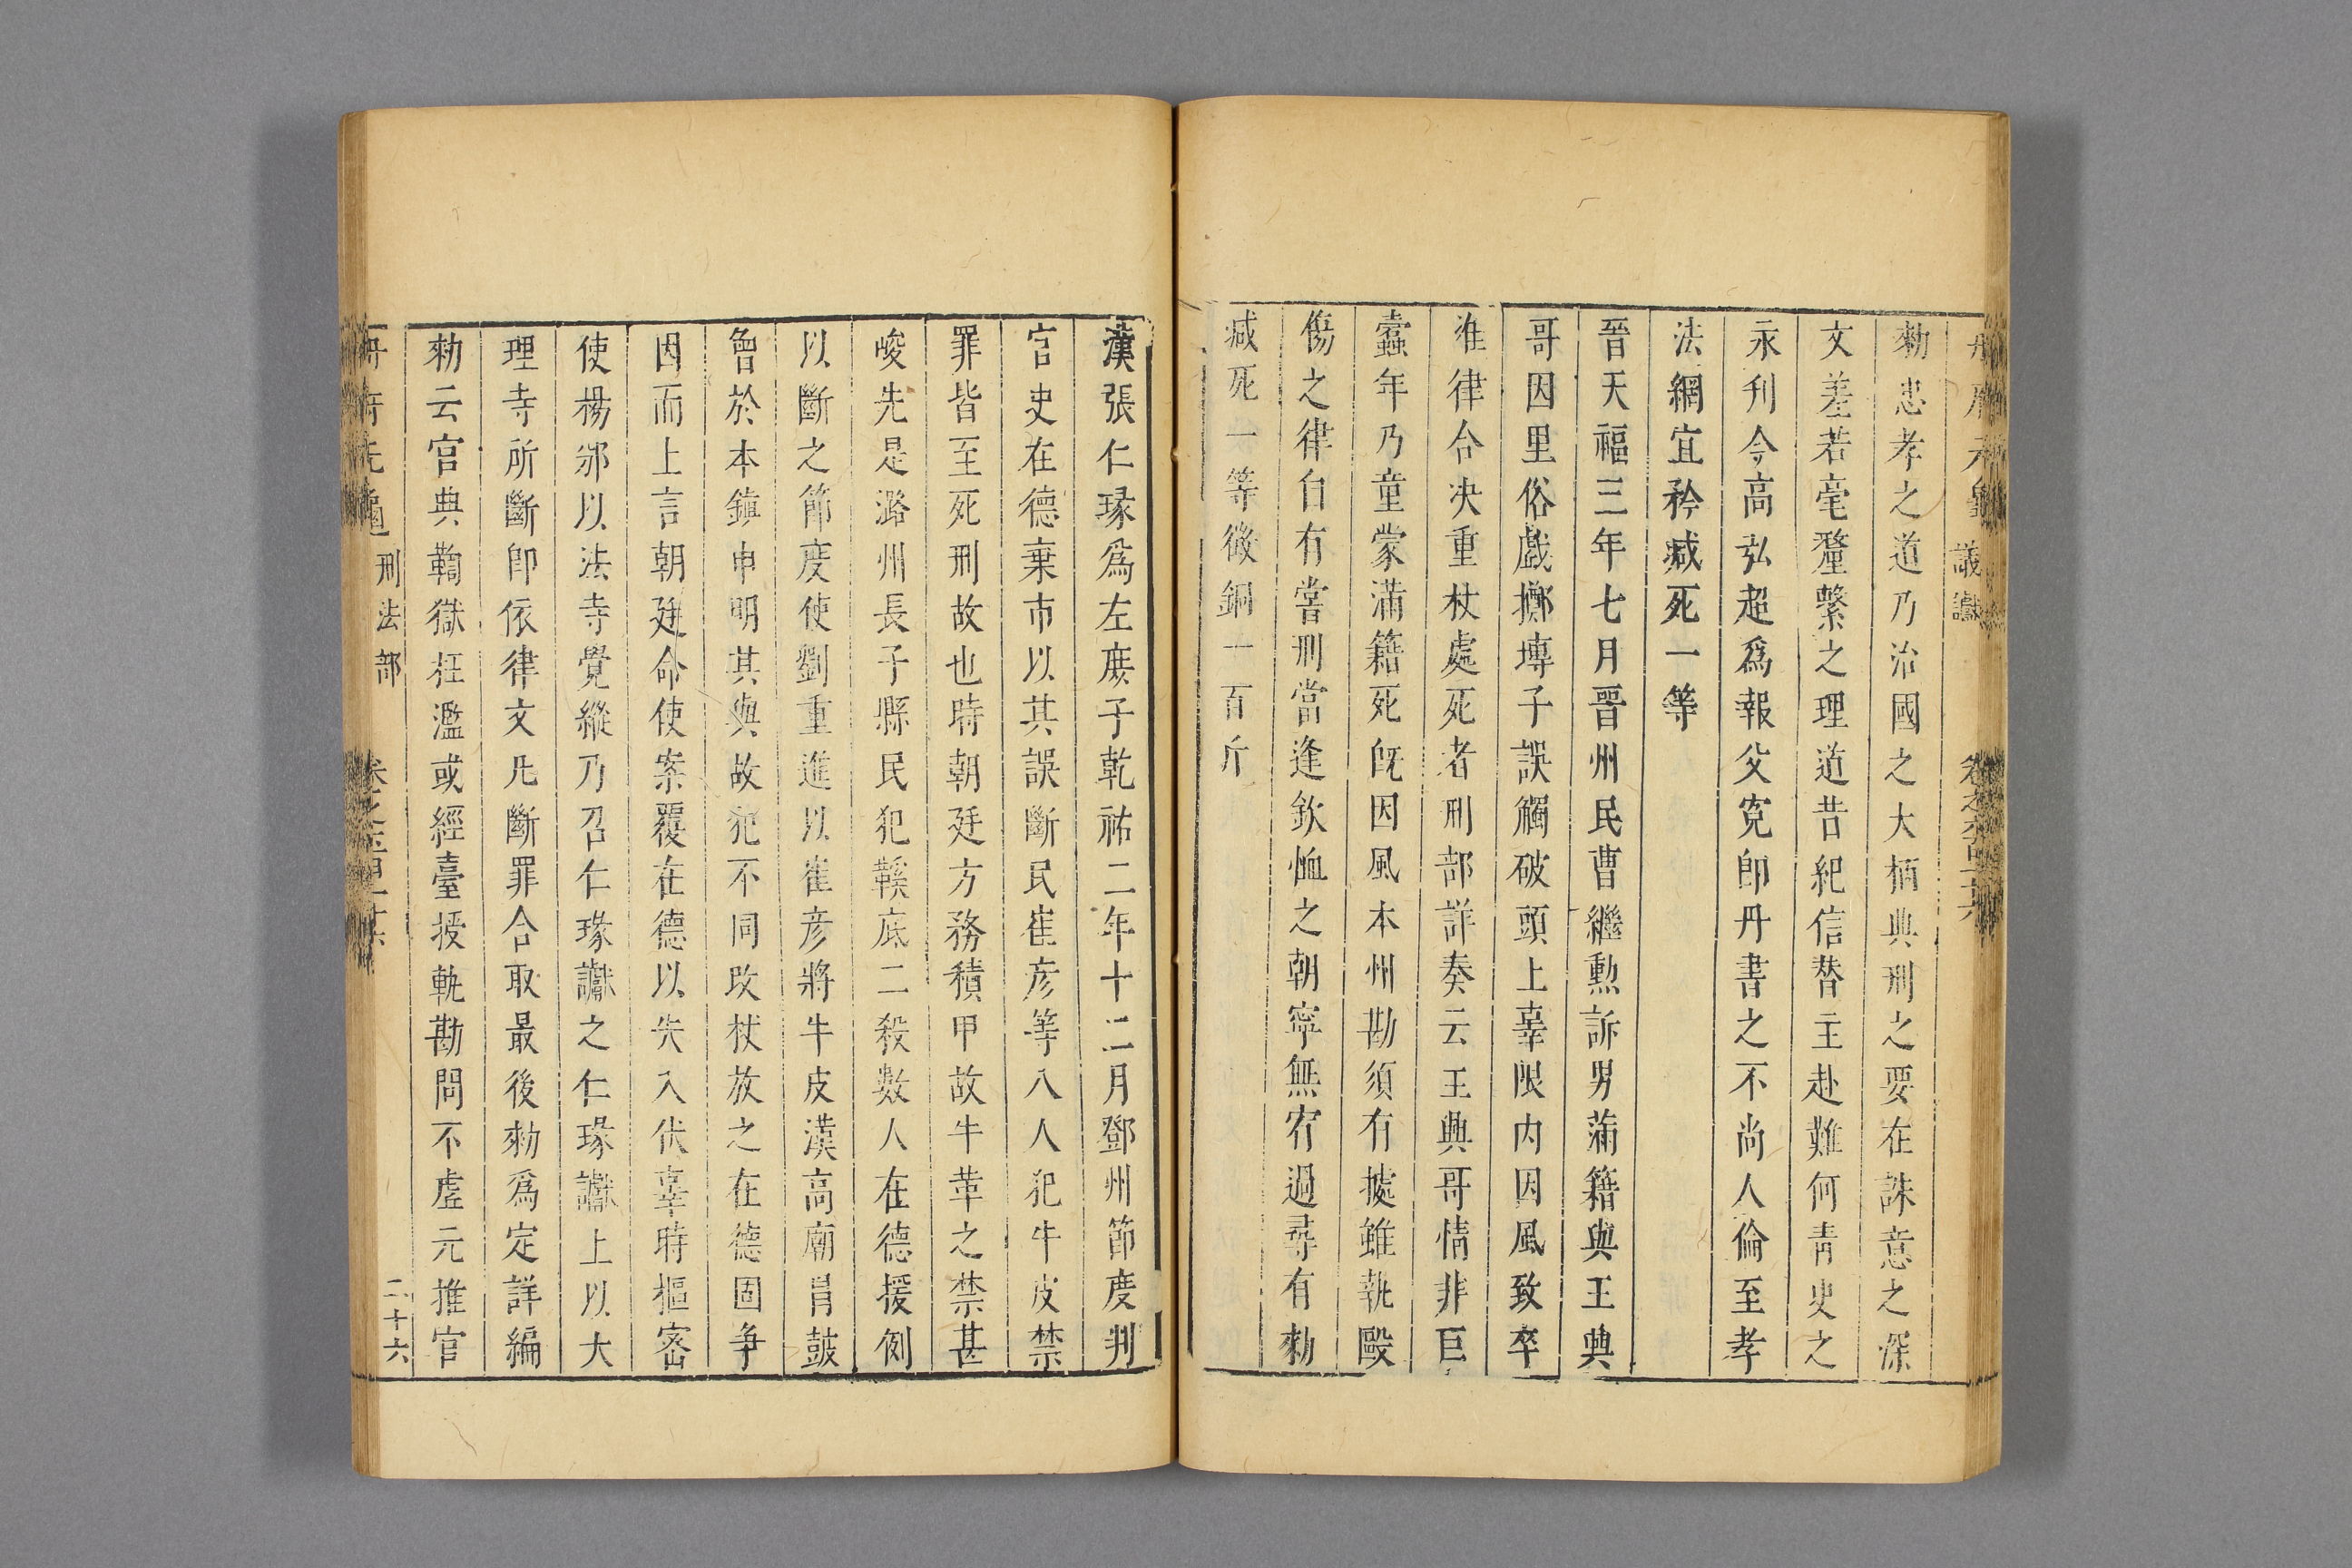 勑忠孝之道乃治國之大柄典刑之要在誅意之深
文差若毫釐繫之理道昔紀信替主赴難何青史之
永刋今高弘超爲報父寃卽丹書之不尚人倫至孝
法網宜矜减死一等
晉天福三年七月晉州民曹繼勲訴男滿籍與王興
哥因里俗戲擲塼子誤觸破頭上辜限内因風致卒
准律合决重杖處死者刑部詳奏云王興哥情非巨
蠧年乃童蒙滿籍死旣因風本州勘須有據雖執毆
傷之律自有嘗刑當逢欽恤之朝寧無宥過尋有勑
减死一等徵銅一百斤
漢張仁瑑爲左庶子乾祐二年十二月鄧州節度判
官史在德棄市以其誤斷民崔彦等八人犯牛皮禁
罪皆至死刑故也時朝廷方務積甲故牛革之禁甚
峻先是潞州長子縣民犯鞵底二殺數人在德援例
以斷之節度使劉重進以崔彦將牛皮漢高廟冐鼓
會於本鎮申明其與故犯不同改杖放之在德固争
因而上言朝廷命使案覆在德以失入伏辜時樞宻
使楊邠以法寺覺縱乃召仁瑑讞之仁瑑讞上以大
理寺所斷卽依律文凡斷罪合取最後勑爲定詳編
勑云官典鞫獄枉濫或經臺授軌勘問不虛元推官
册府元龜 刑法部 二十六